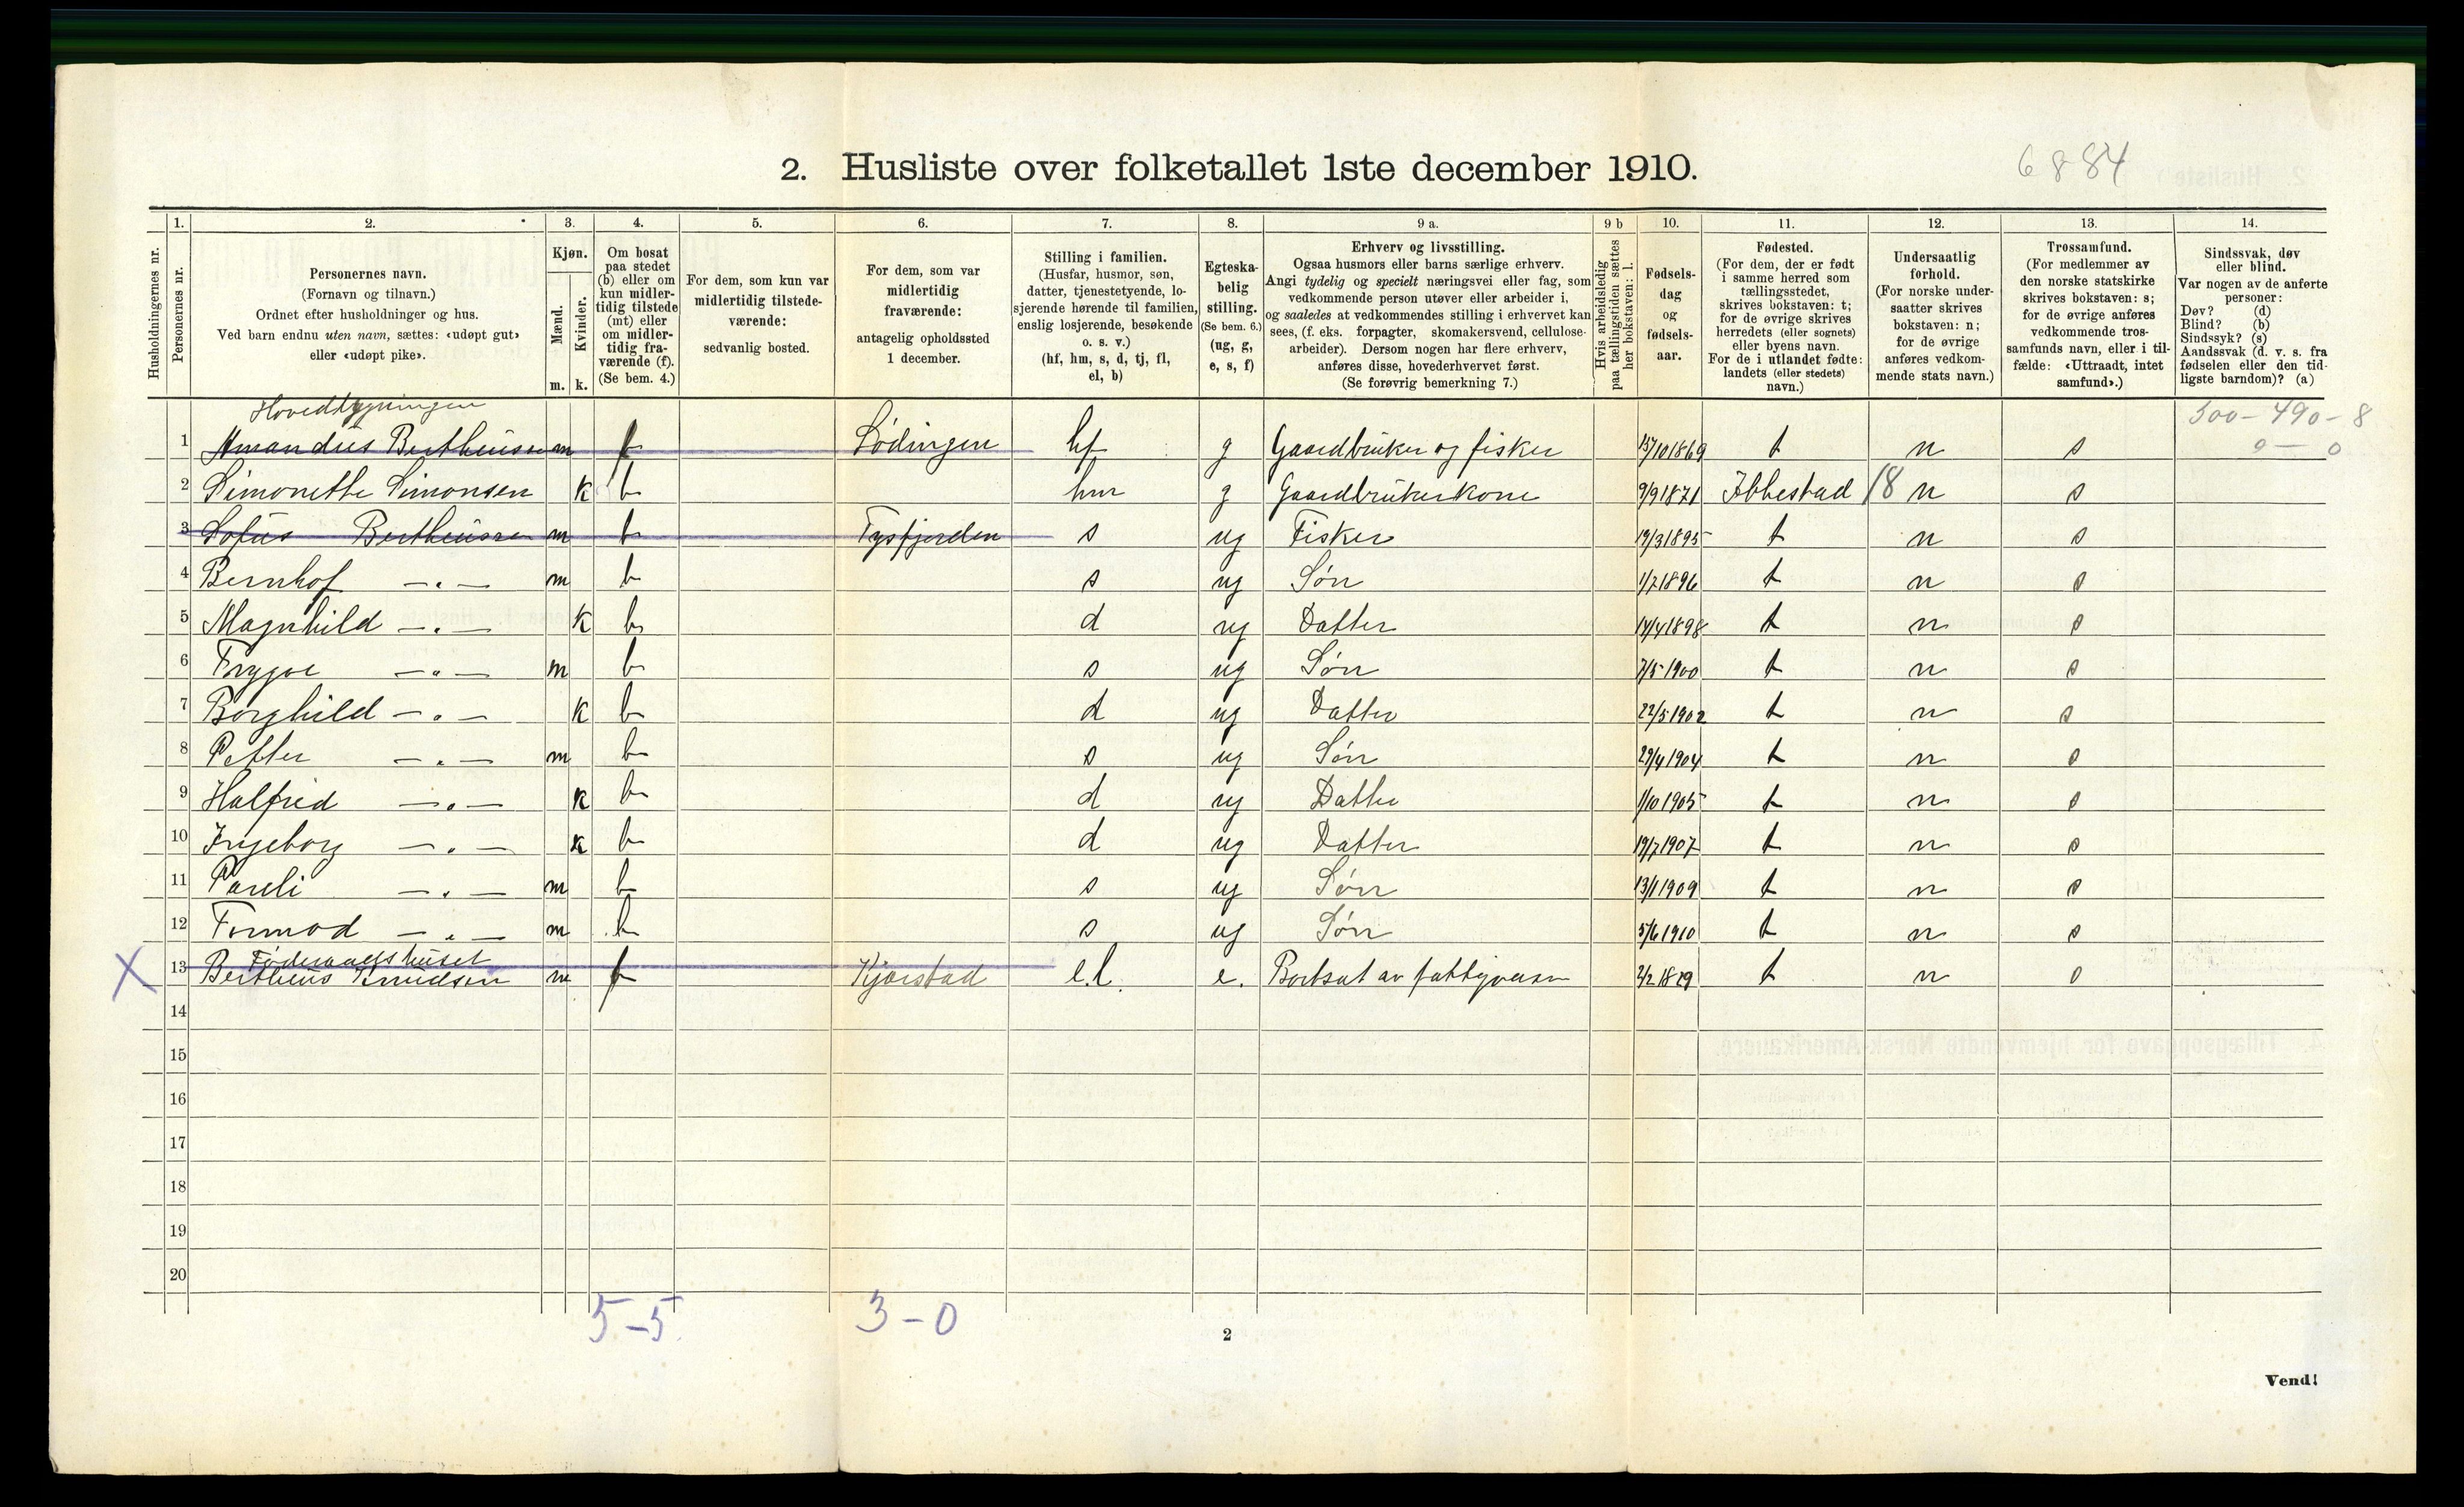 2. Husliste over folketallet 1ste december 1910.
6884
Husholdningernes nr.
1. Personernes nr.
2. Personernes navn.
(Fornavn og tilnavn.)
Ordnet efter husholdninger og hus.
Ved barn endnu uten navn, sættes: «udøpt gut»
eller «udøpt pike».
3. Kjøn.
Mænd. m.
Kvinder. k.
4. Om bosat
paa stedet
(b) eller om
kun midler-
tidig tilstede
(mt) eller
om midler-
tidig fra-
værende (f).
(Se bem. 4.)
5. For dem, som kun var
midlertidig tilstede-
værende:
sedvanlig bosted.
6. For dem, som var
midlertidig
fraværende:
antagelig opholdssted
1 december.
7. Stilling i familien.
(Husfar, husmor, søn,
datter, tjenestetyende, lo-
sjerende hørende til familien,
enslig losjerende, besøkende
o. s. v.)
(hf, hm, s, d, tj, fl,
el, b)
8. Egteska-
belig
stilling.
(Se bem. 6.)
(ug, g,
e, s, f)
9 a. Erhverv og livsstilling.
Ogsaa husmors eller barns særlige erhverv.
Angi tydelig og specielt næringsvei eller fag, som
vedkommende person utøver eller arbeider i,
og saaledes at vedkommendes stilling i erhvervet kan
sees, (f. eks. forpagter, skomakersvend, cellulose-
arbeider). Dersom nogen har flere erhverv,
anføres disse, hovederhvervet først.
(Se forøvrig bemerkning 7.)
9 b Hvis arbeidsledig
paa tællingstiden sættes
her bokstaven: l.
10. Fødsels-
dag
og
fødsels-
aar.
11. Fødested.
(For dem, der er født
i samme herred som
tællingsstedet,
skrives bokstaven: t;
for de øvrige skrives
herredets (eller sognets)
eller byens navn.
For de i utlandet fødte:
landets (eller stedets)
navn.)
12. Undersaatlig
forhold.
(For norske under-
saatter skrives
bokstaven: n;
for de øvrige
anføres vedkom-
mende stats navn.)
13. Trossamfund.
(For medlemmer av
den norske statskirke
skrives bokstaven: s;
for de øvrige anføres
vedkommende tros-
samfunds navn, eller i til-
fælde: «Uttraadt, intet
samfund».)
14. Sindssvak, døv
eller blind.
Var nogen av de anførte
personer:
Døv? (d)
Blind? (b)
Sindssyk? (s)
Aandssvak (d. v. s. fra
fødselen eller den tid-
ligste barndom)? (a)
Hovedbygningen
500-490-8
0-0
1 Amandus Bertheussen m f Lødingen hf g Gaardbruker og fisker 15/10 1869 t n s
2 Simonette Simonsen k b hm g Gaardbrukerkone 9/9 1871 Ibbestad 18 n s
3 Sofus Bertheussen m b Tysfjorden s ug Fisker 19/3 1895 t n s
4 Bernhof -"- m b s ug Søn 1/7 1896 t n s
5 Magnhild -"- k b d ug Datter 14/4 1898 t n s
6 Trygve -"- m b s ug Søn 7/5 1900 t n s
7 Borghild -"- k b d ug Datter 22/5 1902 t n s
8 Petter -"- m b s ug Søn 29/4 1904 t n s
9 Halfrid -"- k b d ug Datter 1/10 1905 t n s
10 Ingeborg -"- k b d ug Datter 19/7 1907 t n s
11 Pareli -"- m b s ug Søn 13/1 1909 t n s
12 Tormod -"- m b s ug Søn 5/6 1910 t n s
Føderaadshuset
X 13 Bertheus Knudsen m f Kjærstad e.l. e. Bortsat av fattigvæsen 2/2 1829 t n s
14
15
16
17
18
19
20
5-5 3-0
2
Vend!